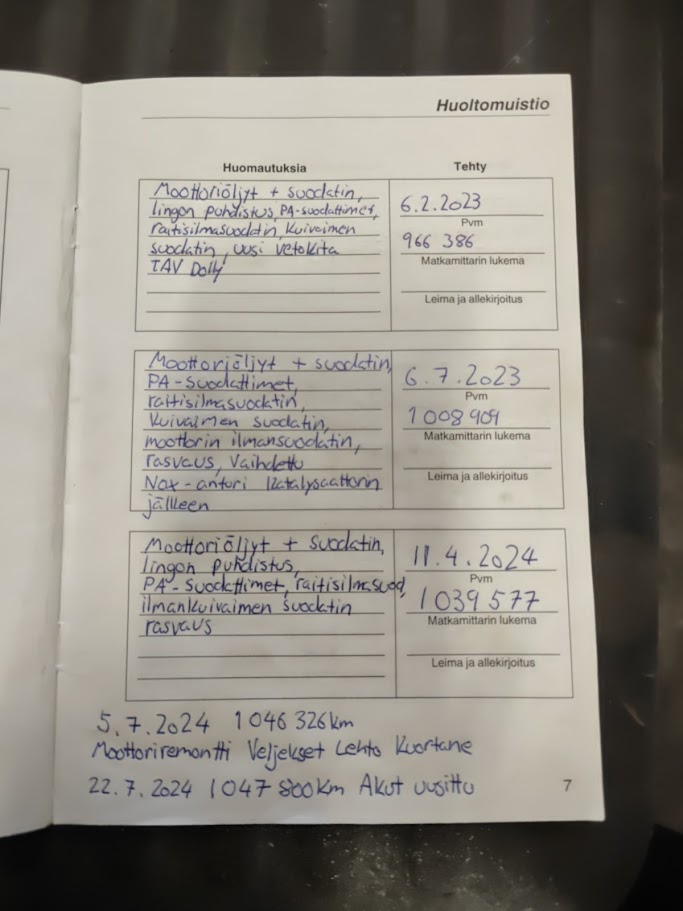 Huoltomuistio
Huomautuksia
Tehty
Moottoriöljyt + suodatin,
lingon puhdistus, PA-suodattimet,
raitisilmasuodatin, kuivaimen
suodatin, uusi vetokita
TAV Dolly
6.2.2023
Pvm
966 386
Matkamittarin lukema
Leima ja allekirjoitus
Moottoriöljyt + suodatin,
PA-suodattimet,
raitisilmasuodatin,
kuivaimen suodatin,
moottorin ilmansuodatin,
rasvaus, vaihdettu
Nox-anturi katalysaattorin
jälkeen
6.7.2023
Pvm
1 008 909
Matkamittarin lukema
Leima ja allekirjoitus
Moottoriöljyt + suodatin,
lingon puhdistus,
PA-suodattimet, raitisilmasuod,
ilmankuivaimen suodatin
rasvaus
11.4.2024
Pvm
1 039 577
Matkamittarin lukema
Leima ja allekirjoitus
5.7.2024 1 046 326km
Moottoriremontti Veljekset Lehto Kuortane
22.7.2024 1 047 800km Akut uusittu
7